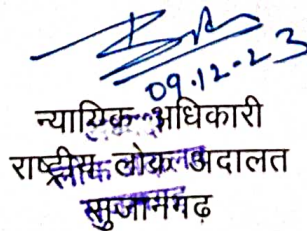 09.12.23
न्यायिक अधिकारी
राष्ट्रीय लोक अदालत
सुजानगढ़